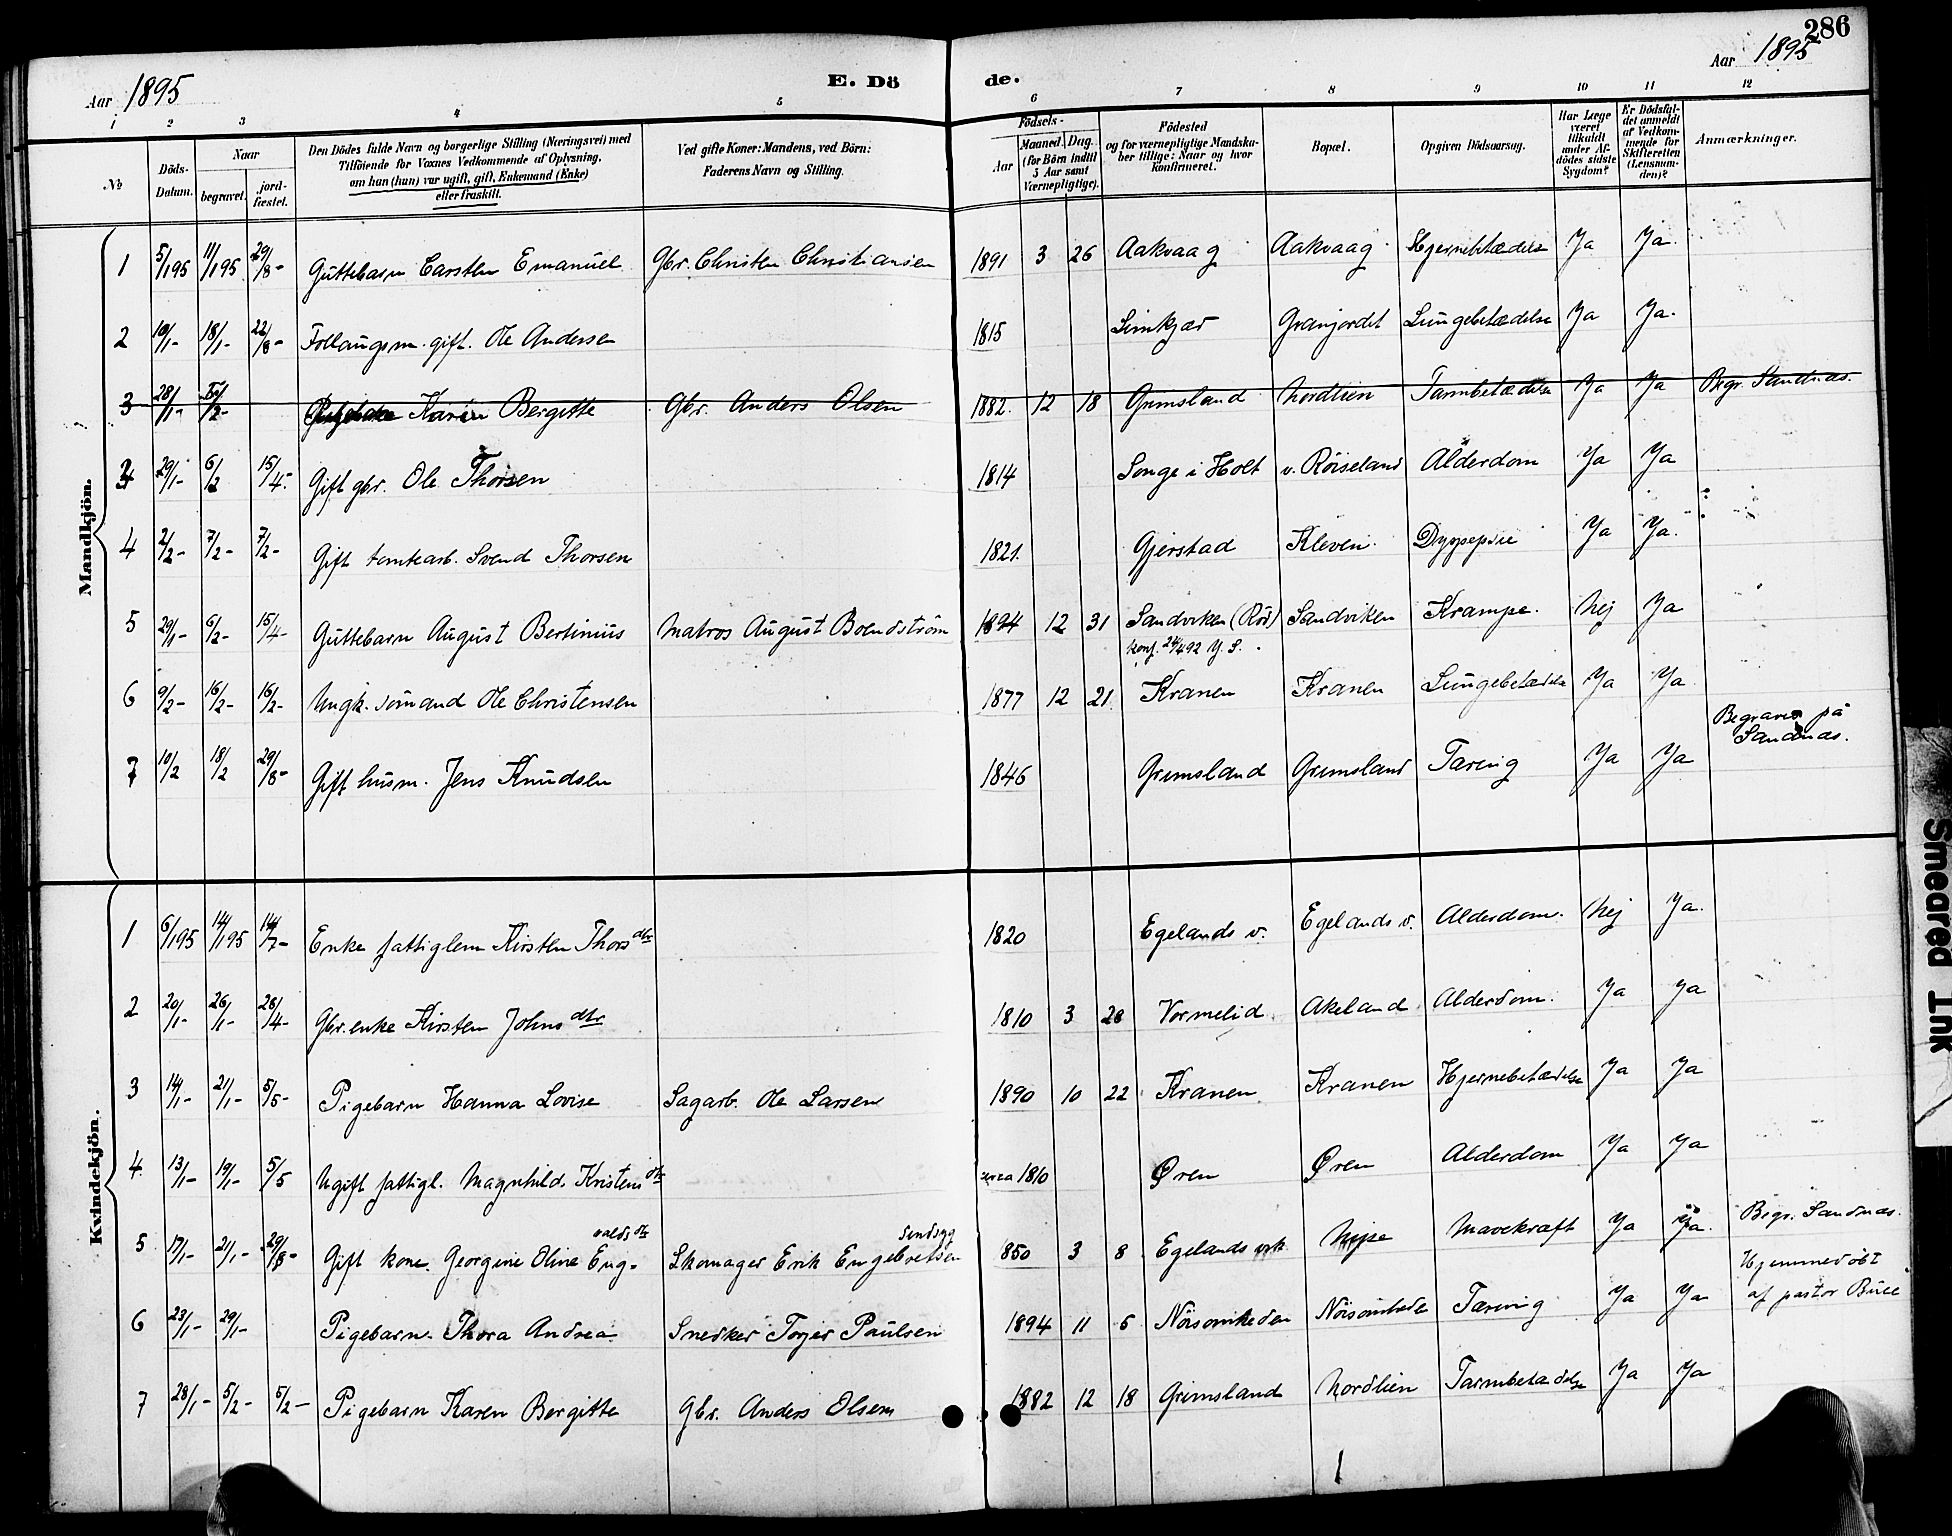 286
Aar 1895 E. Dö de. Aar 1895
1 2 3 4 5 6 7 8 9 10 11 12
№ Döds-Datum. Naar begravet. jord-fæstet. Den Dödes fulde Navn og borgerlige Stilling (Næringsvei) med Tilföiende for Voxnes Vedkommende af Oplysning, om han (hun) var ugift, gift, Enkemand (Enke) eller fraskilt. Ved gifte Koner: Mandens, ved Börn: Faderens Navn og Stilling. Födsels- Aar Maaned. Dag. (for Börn indtil 5 Aar samt Værnepligtige). Födested og for værnepligtige Mandska-ber tillige: Naar og hvor konfirmeret. Bopæl. Opgiven Dödsaarsag. Har Læge været tilkaldt under Af-dödes sidste Sygdom? Er Dödsfal-det anmeldt af Vedkom-mende for Skifteretten (Lensman-den)? Anmærkninger.
Mandkjön.
1 5/1 95 11/1 95 29/8 - Guttebarn Carsten Emanuel Gbr. Christen Christiansen 1891 3 26 Aakvaag Aakvaag Hjernebetædelse Ja Ja.
2 10/1 - 18/1 - 22/8 - Follaugsm. gift. Ole Andersen 1815 Limkjær Granjordet Lungebetædelse Ja Ja.
3 28/1 - 5/2 - Pigebarn Karen Bergitte Gbr. Anders Olsen 1882. 12 18 Grimsland Nordlien Tarmbetædelse Ja Ja Begr. Sandnæs.
3 29/1 - 6/2 15/4 - Gift gbr. Ole Thorsen 1814 Songe i Holt v. Röiseland Alderdom Ja Ja
4 2/2 - 7/2 - 7/2 - Gift tomtearb. Svend Thorsen 1821. Gjerstad Kleven. Dyspepsie Ja Ja.
5 29/1 - 6/2 - 15/4 - Guttebarn August Bertinius Matros August Boendström 1894 12 31 Sandviken (Röd) Sandviken Krampe. Nej Ja
konf. 24/4 92 Y. S.
6 9/2 - 16/2 - 16/2 - Ungk. sömand Ole Christensen 1877 12 21 Kranen Kranen Lungebetædelse Ja Ja
7 10/2 18/2 29/8 - Gift husm. Jens Knudsen 1846 Grimsland Grimsland Tæring Ja Ja Begraves på Sandnæs.
Kvindekjön.
1 6/1 95 14/1 95 14/7 - Enke fattiglem Kirsten Thorsdtr 1820 Egelands v. Egelands v. Alderdom. Nej Ja.
2 20/1 - 26/1 - 28/4 - Gbr. enke Kirsten Johnsdtr 1810 3 28 Vormelid Akeland Alderdom. Ja Ja
3 14/1 - 21/1 - 5/5 - Pigebarn Hanna Lovise Sagarb. Ole Larsen 1890 10 22 Kranen Kranen Hjernebetædelse Ja Ja
4 13/1 - 19/1 - 5/5 Ugift fattigl. Magnhild Kristensdtr circa 1810 Øren Øren Alderdom Ja Ja
5 17/1 - 21/1 - 29/8 - Gift kone. Georgine Oline Eng- valdsdtr Skomager Erik Engebretsen 1850 3 8 Egelands vrk Mavekræft Ja Ja. Begr. Sandnæs.
6 23/1 - 29/1 - Pigebarn Thora Andrea Snedker Torjer Paulsen 1894 11 5 Nöisomheden Nöisomhede Tæring Ja Ja Hjemmedöbt af pastor Bue
7 28/1 - 5/2 - 5/2 - Pigebarn Karen Bergitte Gbr. Anders Olsen 1882 12 18 Grimsland Nordlien Tarmbetædelse Ja Ja
Smeared Ink